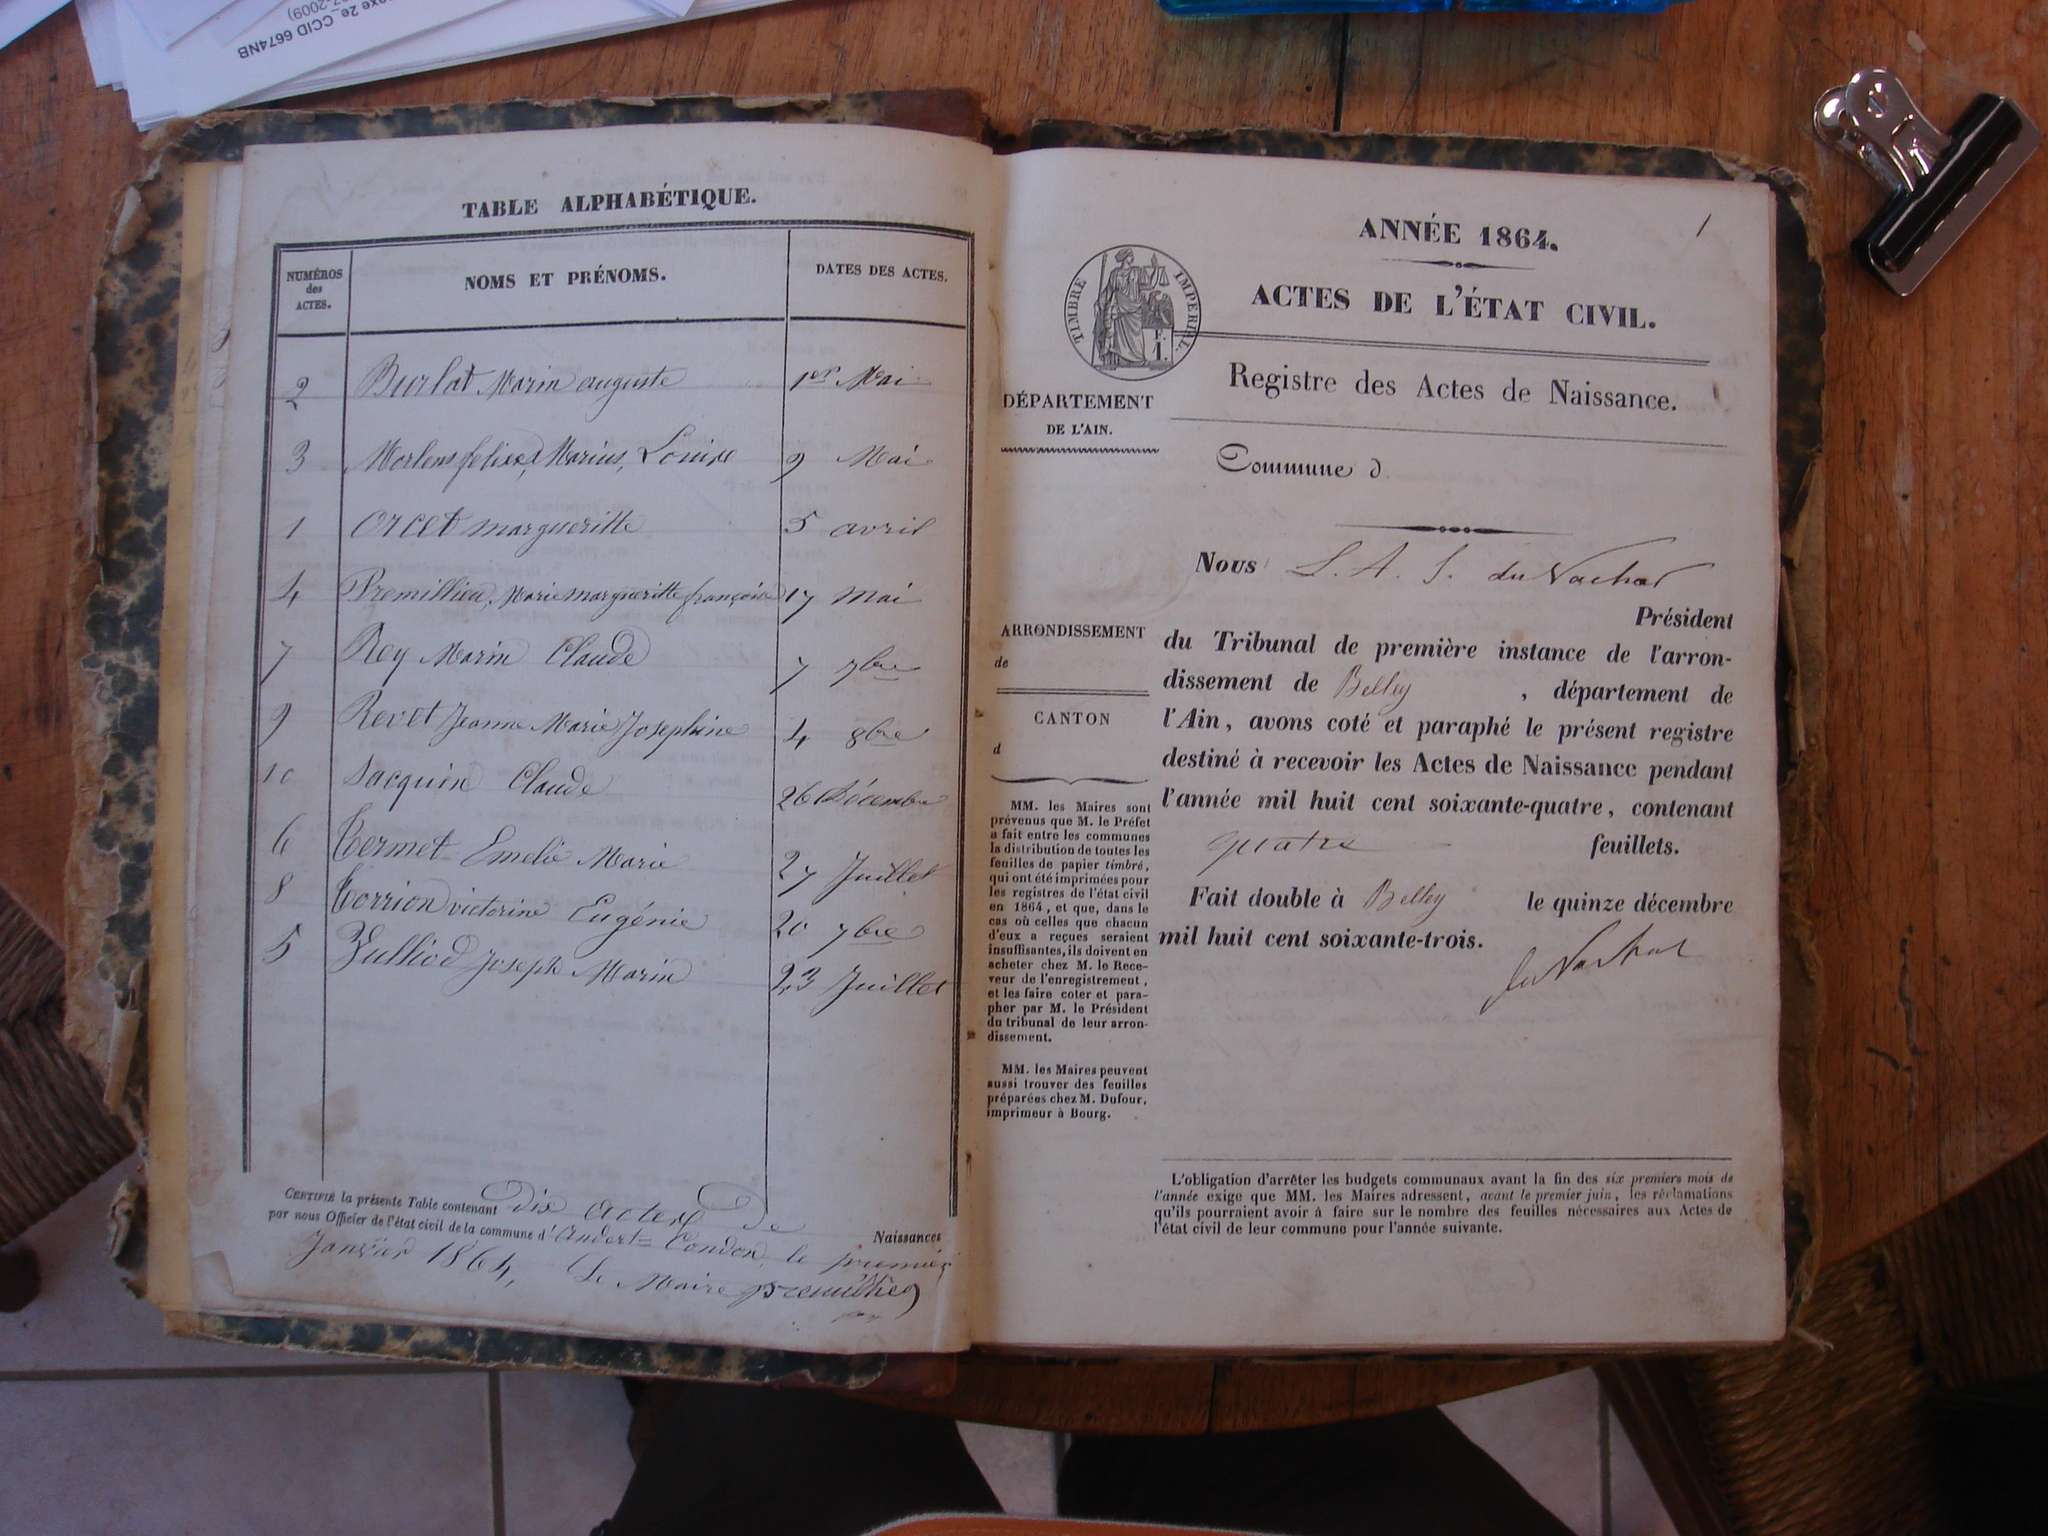 oxe 2e_CCID 6674NB
7-2009)
TABLE ALPHABÉTIQUE.
NUMÉROS des ACTES. NOMS ET PRÉNOMS. DATES DES ACTES.
2 Burlat Marin auguste 1er Mai
3 Marius, Louise 9 Mai
1 Orcet margueritte 5 avril
4 Premillieu, Marie margueritte françoise 17 Mai
7 Rey Marin Claude 7 7bre
9 Revet Jeanne Marie Josephine 4 8bre
10 Claude 26 Décembre
6 Termet Emelie Marie 27 Juillet
8 Torrion victorine Eugénie 20 7bre
5 Joseph Marin 23 Juillet
CERTIFIÉ la présente Table contenant Dix actes de Naissances
par nous Officier de l'état civil de la commune d'Andert-Condon, le premier
Janvier 1864, Le Maire
1
ANNÉE 1864.
ACTES DE L'ÉTAT CIVIL.
TIMBRE IMPÉRIAL.
F.
1.
Registre des Actes de Naissance.
DÉPARTEMENT
DE L'AIN.
Commune d
Nous L. A. S. du Vachat
Président
du Tribunal de première instance de l'arron-
dissement de Belley , département de
l'Ain, avons coté et paraphé le présent registre
destiné à recevoir les Actes de Naissance pendant
l'année mil huit cent soixante-quatre, contenant
quatre feuillets.
Fait double à Belley le quinze décembre
mil huit cent soixante-trois.
du Vachat
ARRONDISSEMENT
de
CANTON
d
MM. les Maires sont
prévenus que M. le Préfet
a fait entre les communes
la distribution de toutes les
feuilles de papier timbré,
qui ont été imprimées pour
les registres de l'état civil
en 1864, et que, dans le
cas où celles que chacun
d'eux a reçues seraient
insuffisantes, ils doivent en
acheter chez M. le Rece-
veur de l'enregistrement,
et les faire coter et para-
pher par M. le Président
du tribunal de leur arron-
dissement.
MM. les Maires peuvent
aussi trouver des feuilles
préparées chez M. Dufour,
imprimeur à Bourg.
L'obligation d'arrêter les budgets communaux avant la fin des six premiers mois de
l'année exige que MM. les Maires adressent, avant le premier juin, les réclamations
qu'ils pourraient avoir à faire sur le nombre des feuilles nécessaires aux Actes de
l'état civil de leur commune pour l'année suivante.